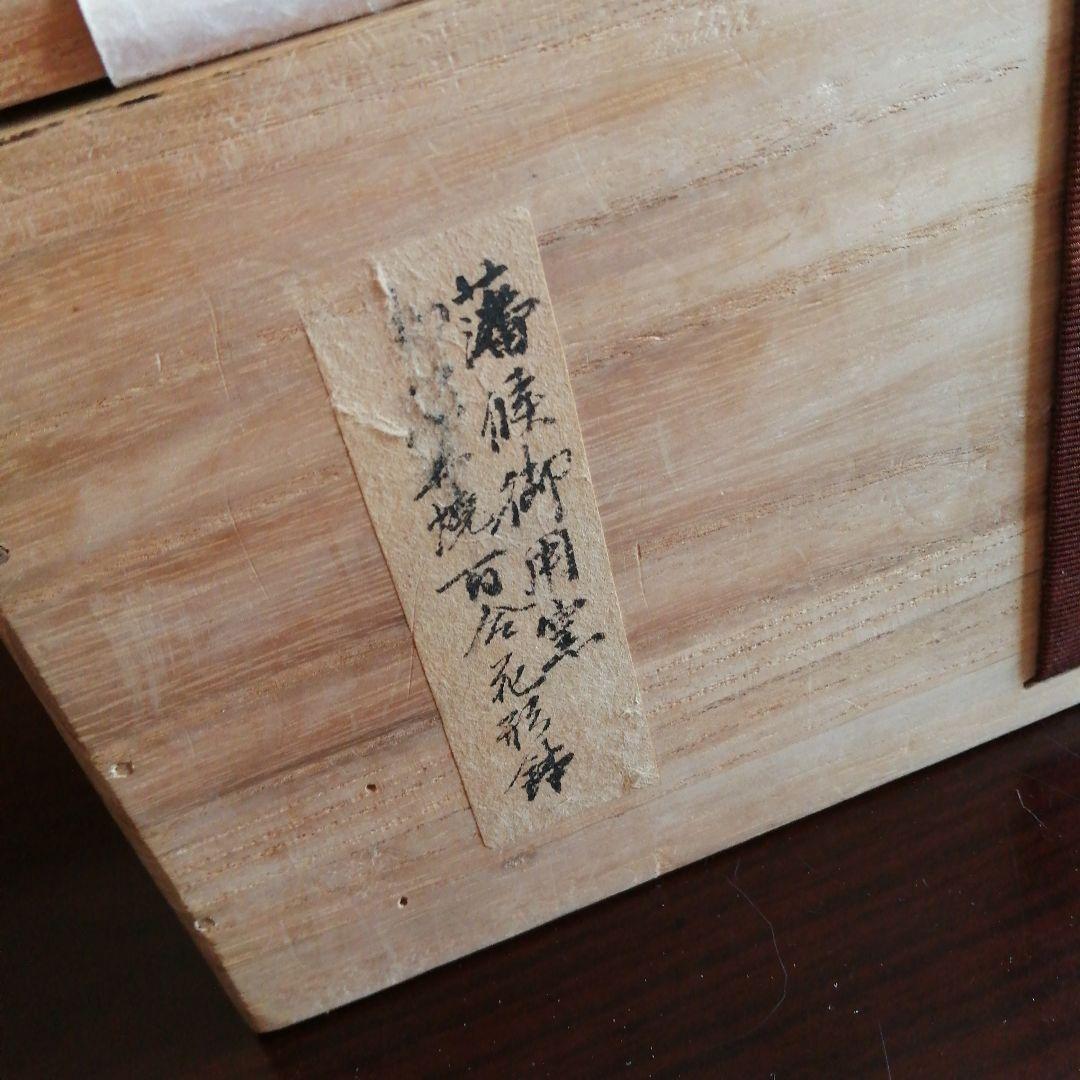 藩候御用窯
焼百合花形鉢